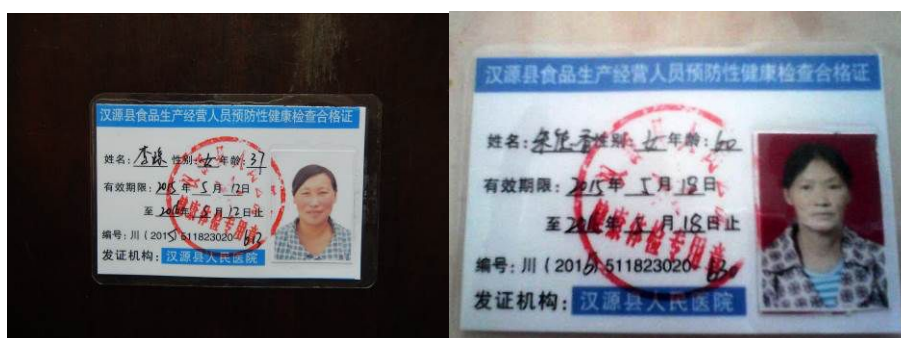 汉源县食品生产经营人员预防性健康检查合格证
姓名：李 性别：女 年龄：37
有效期限：2015年 5月 12日
至 2016年 5月 12日止
编号：川（2015）511823020-612
发证机构：汉源县人民医院
汉源县食品生产经营人员预防性健康检查合格证
姓名： 性别：女 年龄：
有效期限：2015年 5月 18日
至 2016年 5月 18日止
编号：川（2015）511823020-630
发证机构：汉源县人民医院